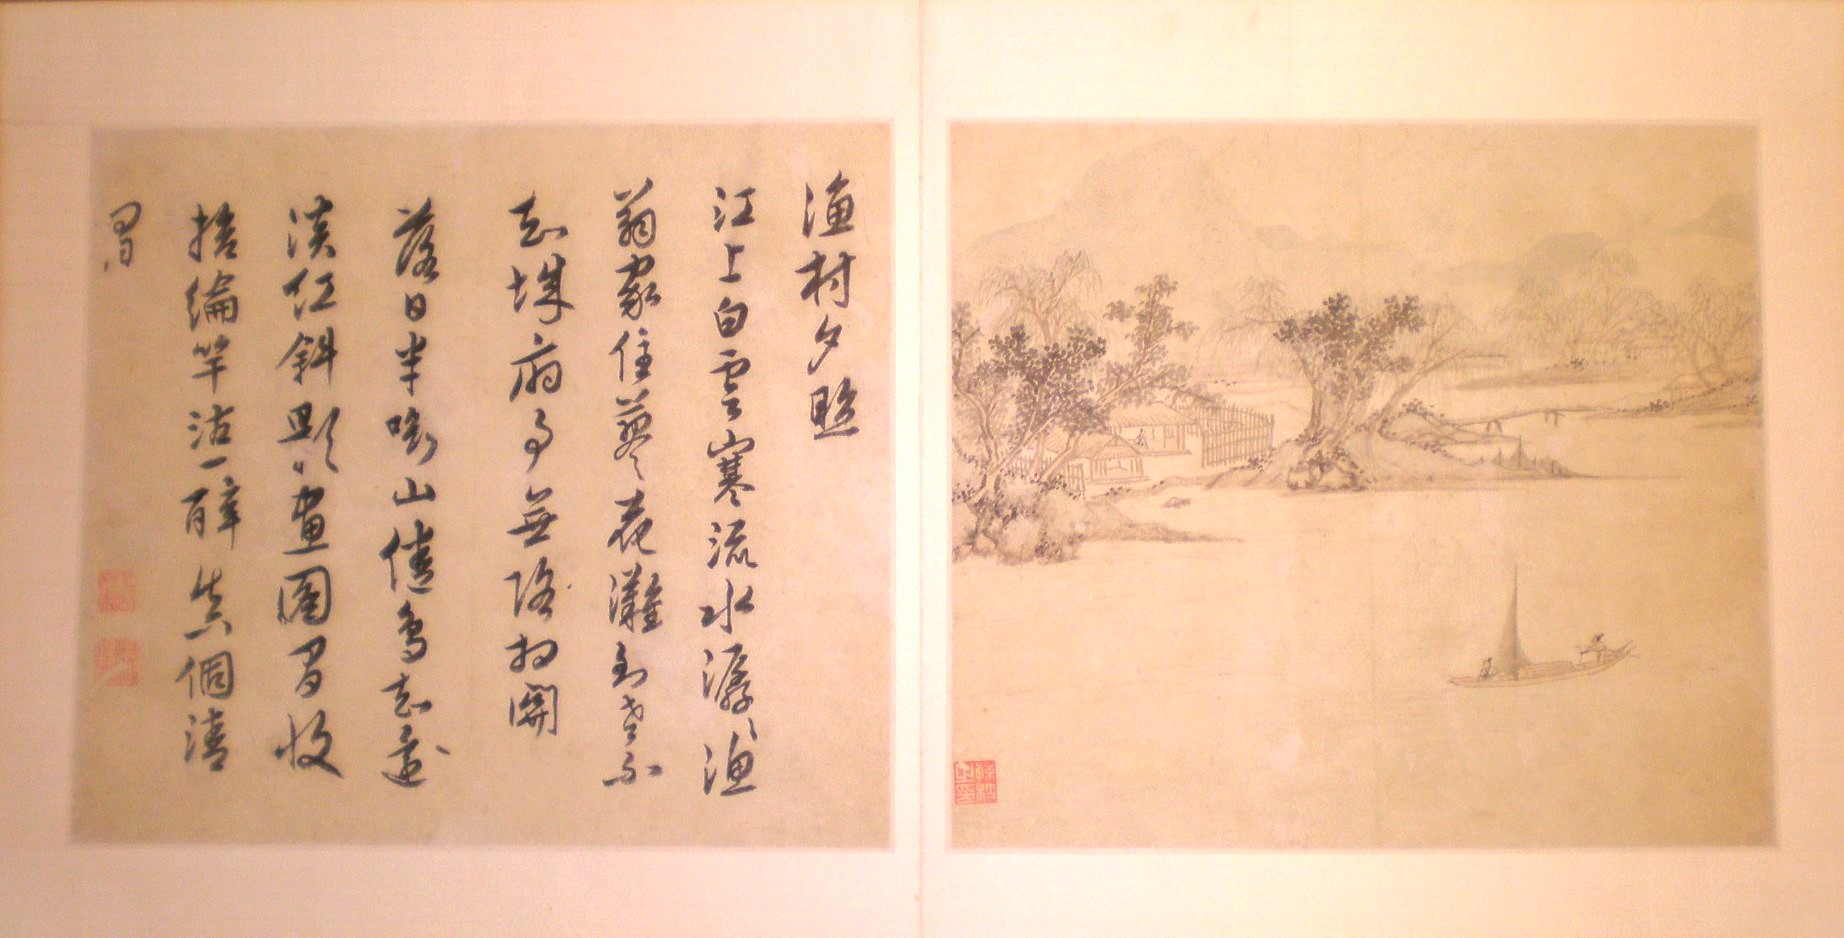 漁村夕照
江上白雲寒流水潺〻漁
翁家住蓼花灘到老不
知城府事無路相關
落日半啣山倦鳥知還
淡紅斜影畫圖間收
拾綸竿沽一醉真個清
閒